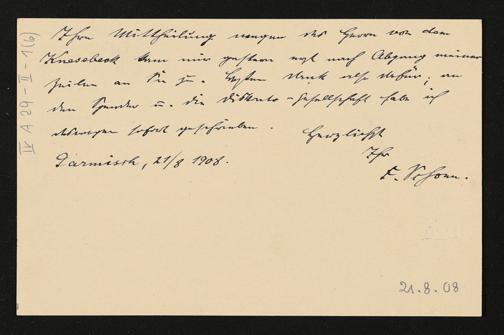 Ihre Mittheilung wegen des Herrn von dem
Knesebeck kam mir gestern erst nach Abgang meiner
Zeilen an Sie zu. Besten Dank also dafür; an
den Spender u. die Diskonto-Gesellschaft habe ich
deswegen sofort geschrieben. Herzlichst
Ihr
Garmisch, 21/8 1908.
F. Schoen.
21.8.08
IV A 29-II-1(6)